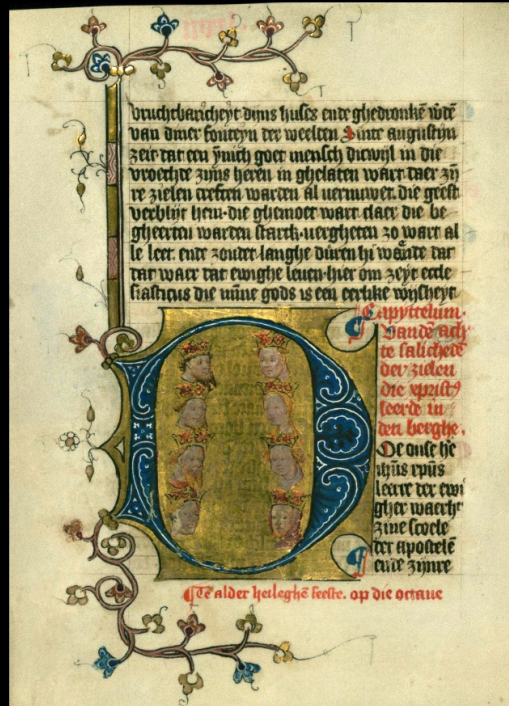 vruchtbaricheyt dijns huses ende ghedronkē wdē
van diner fonteyn der weelten Sinte augustijn
zeit dat een ynich goet mensch dicwijl in die
vroechde zijns heren in ghelaten wart daer zij
re zielen creften warden al vernuwet. die geest
verblijt hem. die ghemoet wart claer die be
gheerten warden starck. vergheten zo wart al
le leet. ende zonder langhe dūren hi waende dat
dat waer dat ewighe leuen. hier om zeyt eccle
siasticus die mīne gods is een eerlike wijsheyt
Capyttelum.
Vandē ach
te salichedē
der zielen
die xpristꝰ
leerde in
den berghe.
Doe onse he
ihūs xpūs
leerre der ewi
gher waerht
zine scole
der apostelē
ende zijnre
Tē alder heileghē feeste. op die octaue